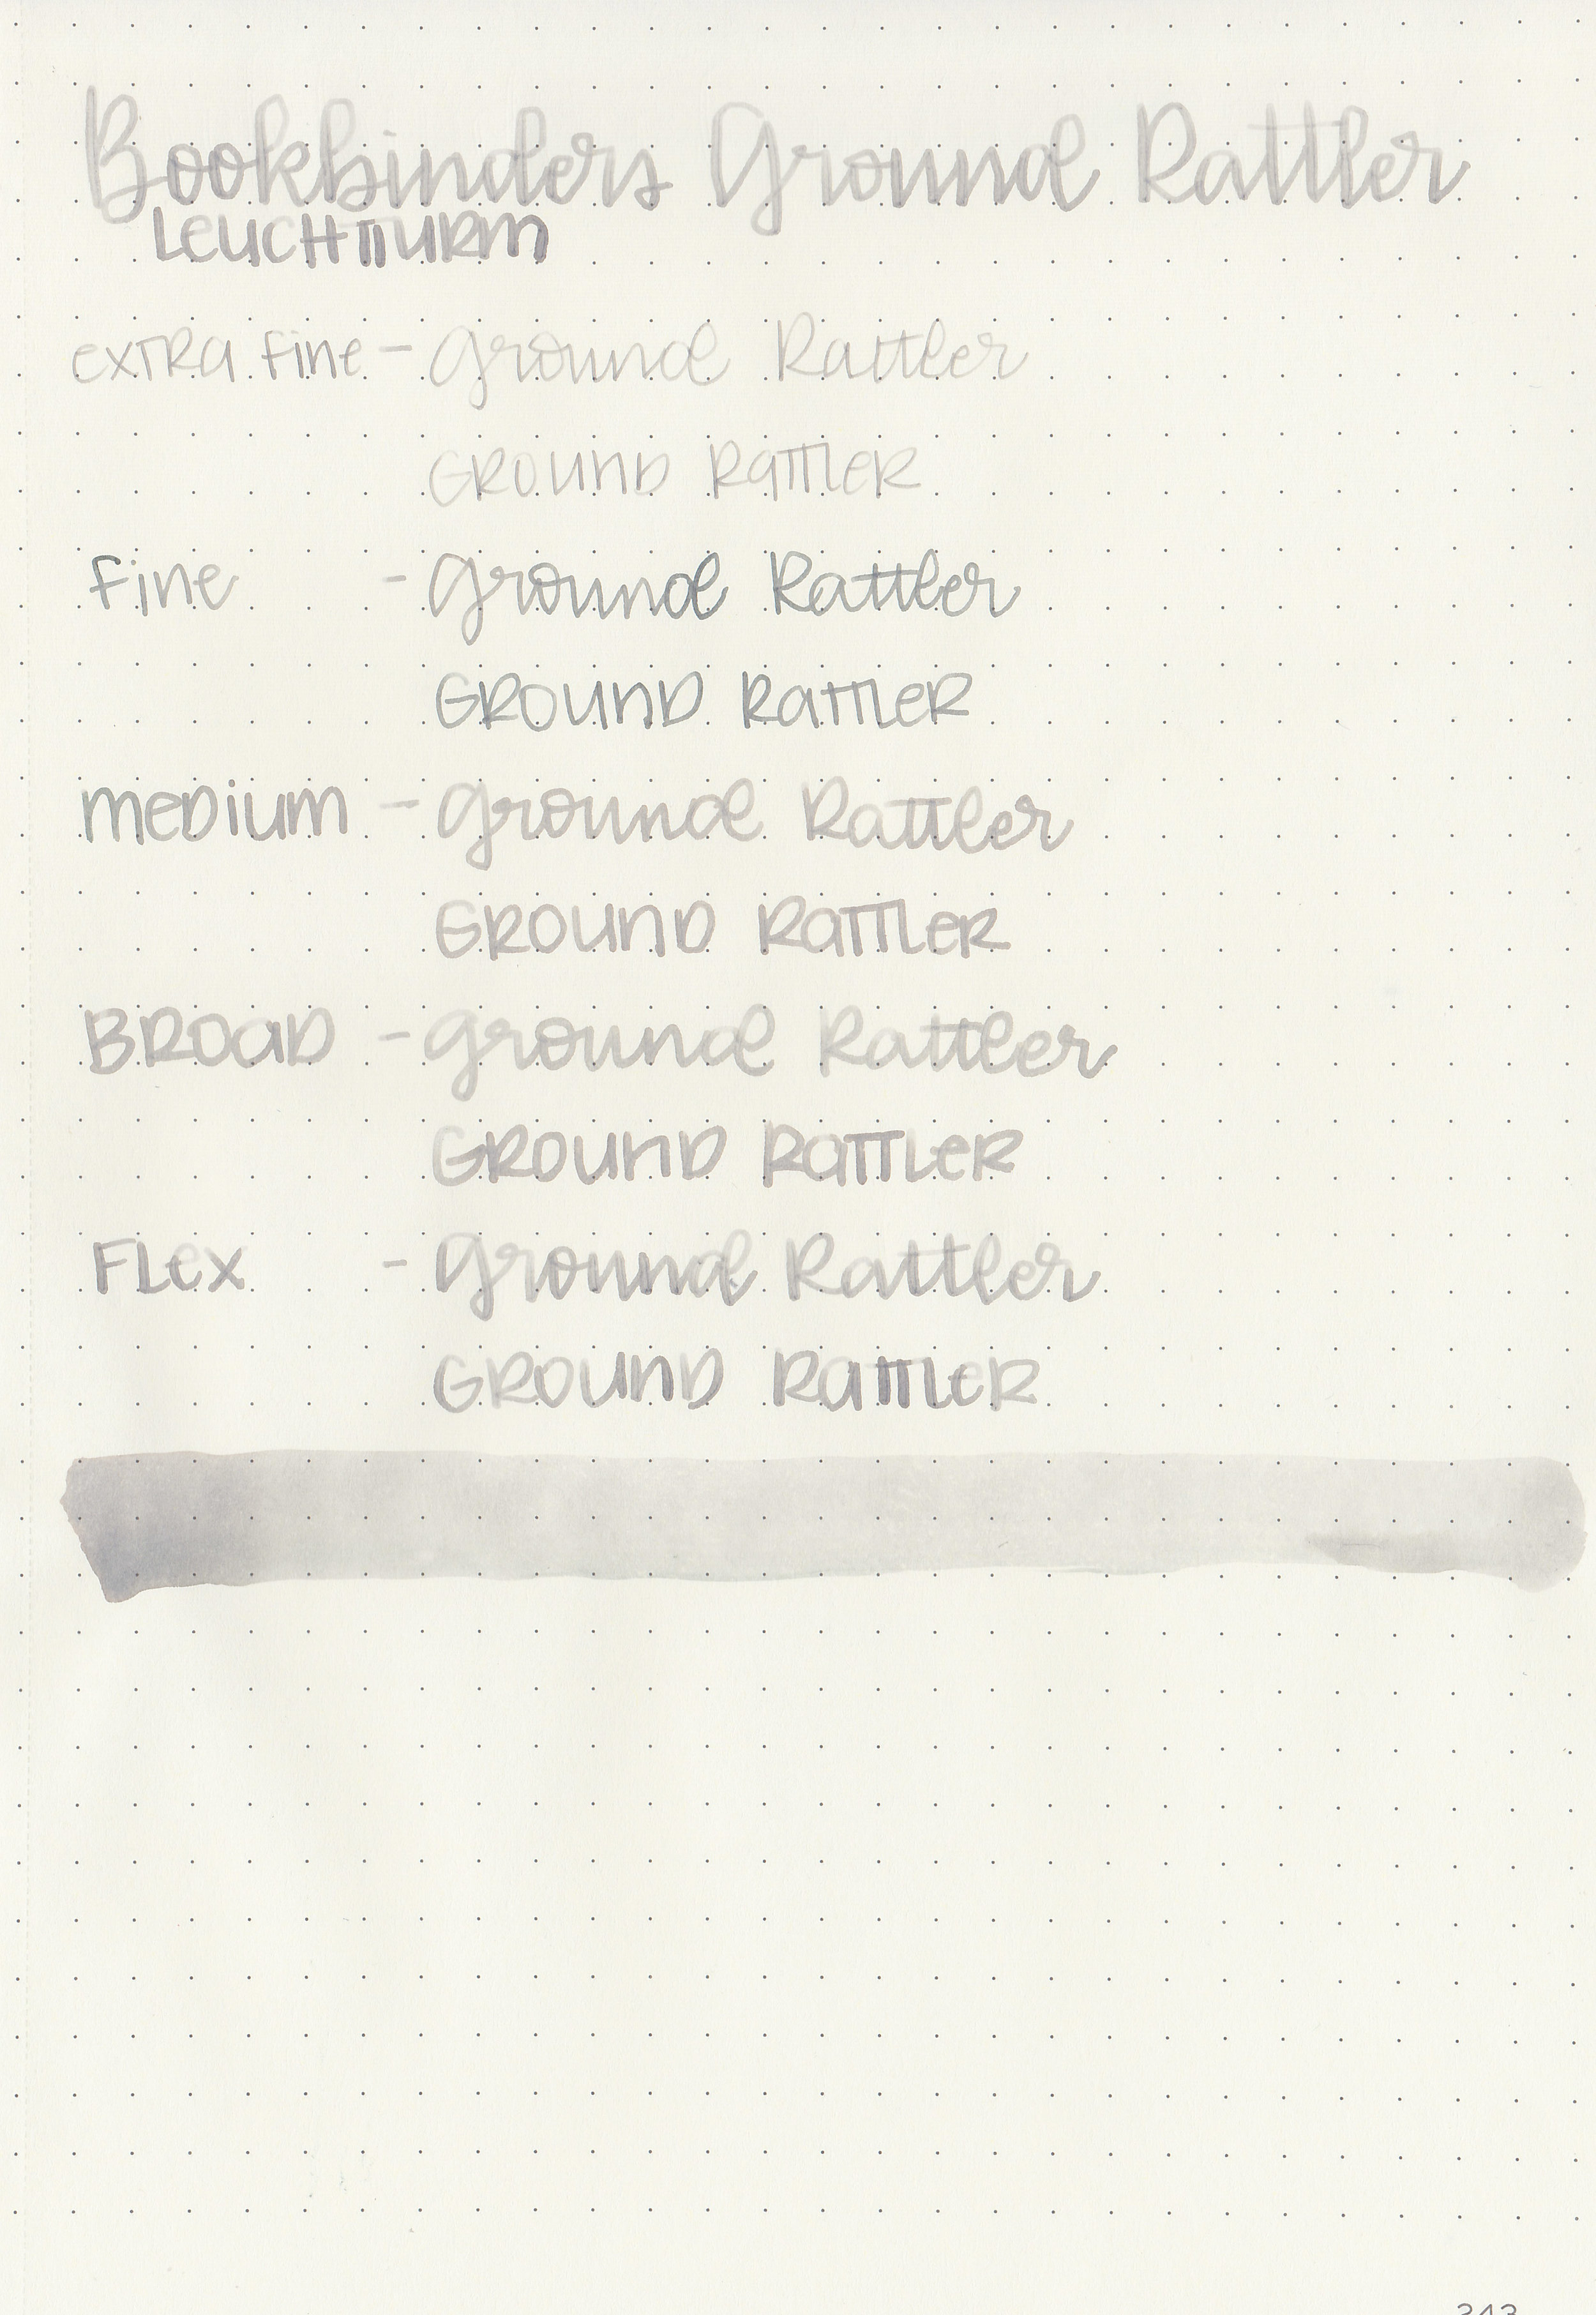 Bookbinders Ground Rattler
LEUCHTTURM
extra fine - Ground Rattler
GROUND RATTLER
Fine - Ground Rattler
GROUND RATTLER
MEDIUM - Ground Rattler
GROUND RATTLER
BROAD - Ground Rattler
GROUND RATTLER
FLEX - Ground Rattler
GROUND RATTLER
243